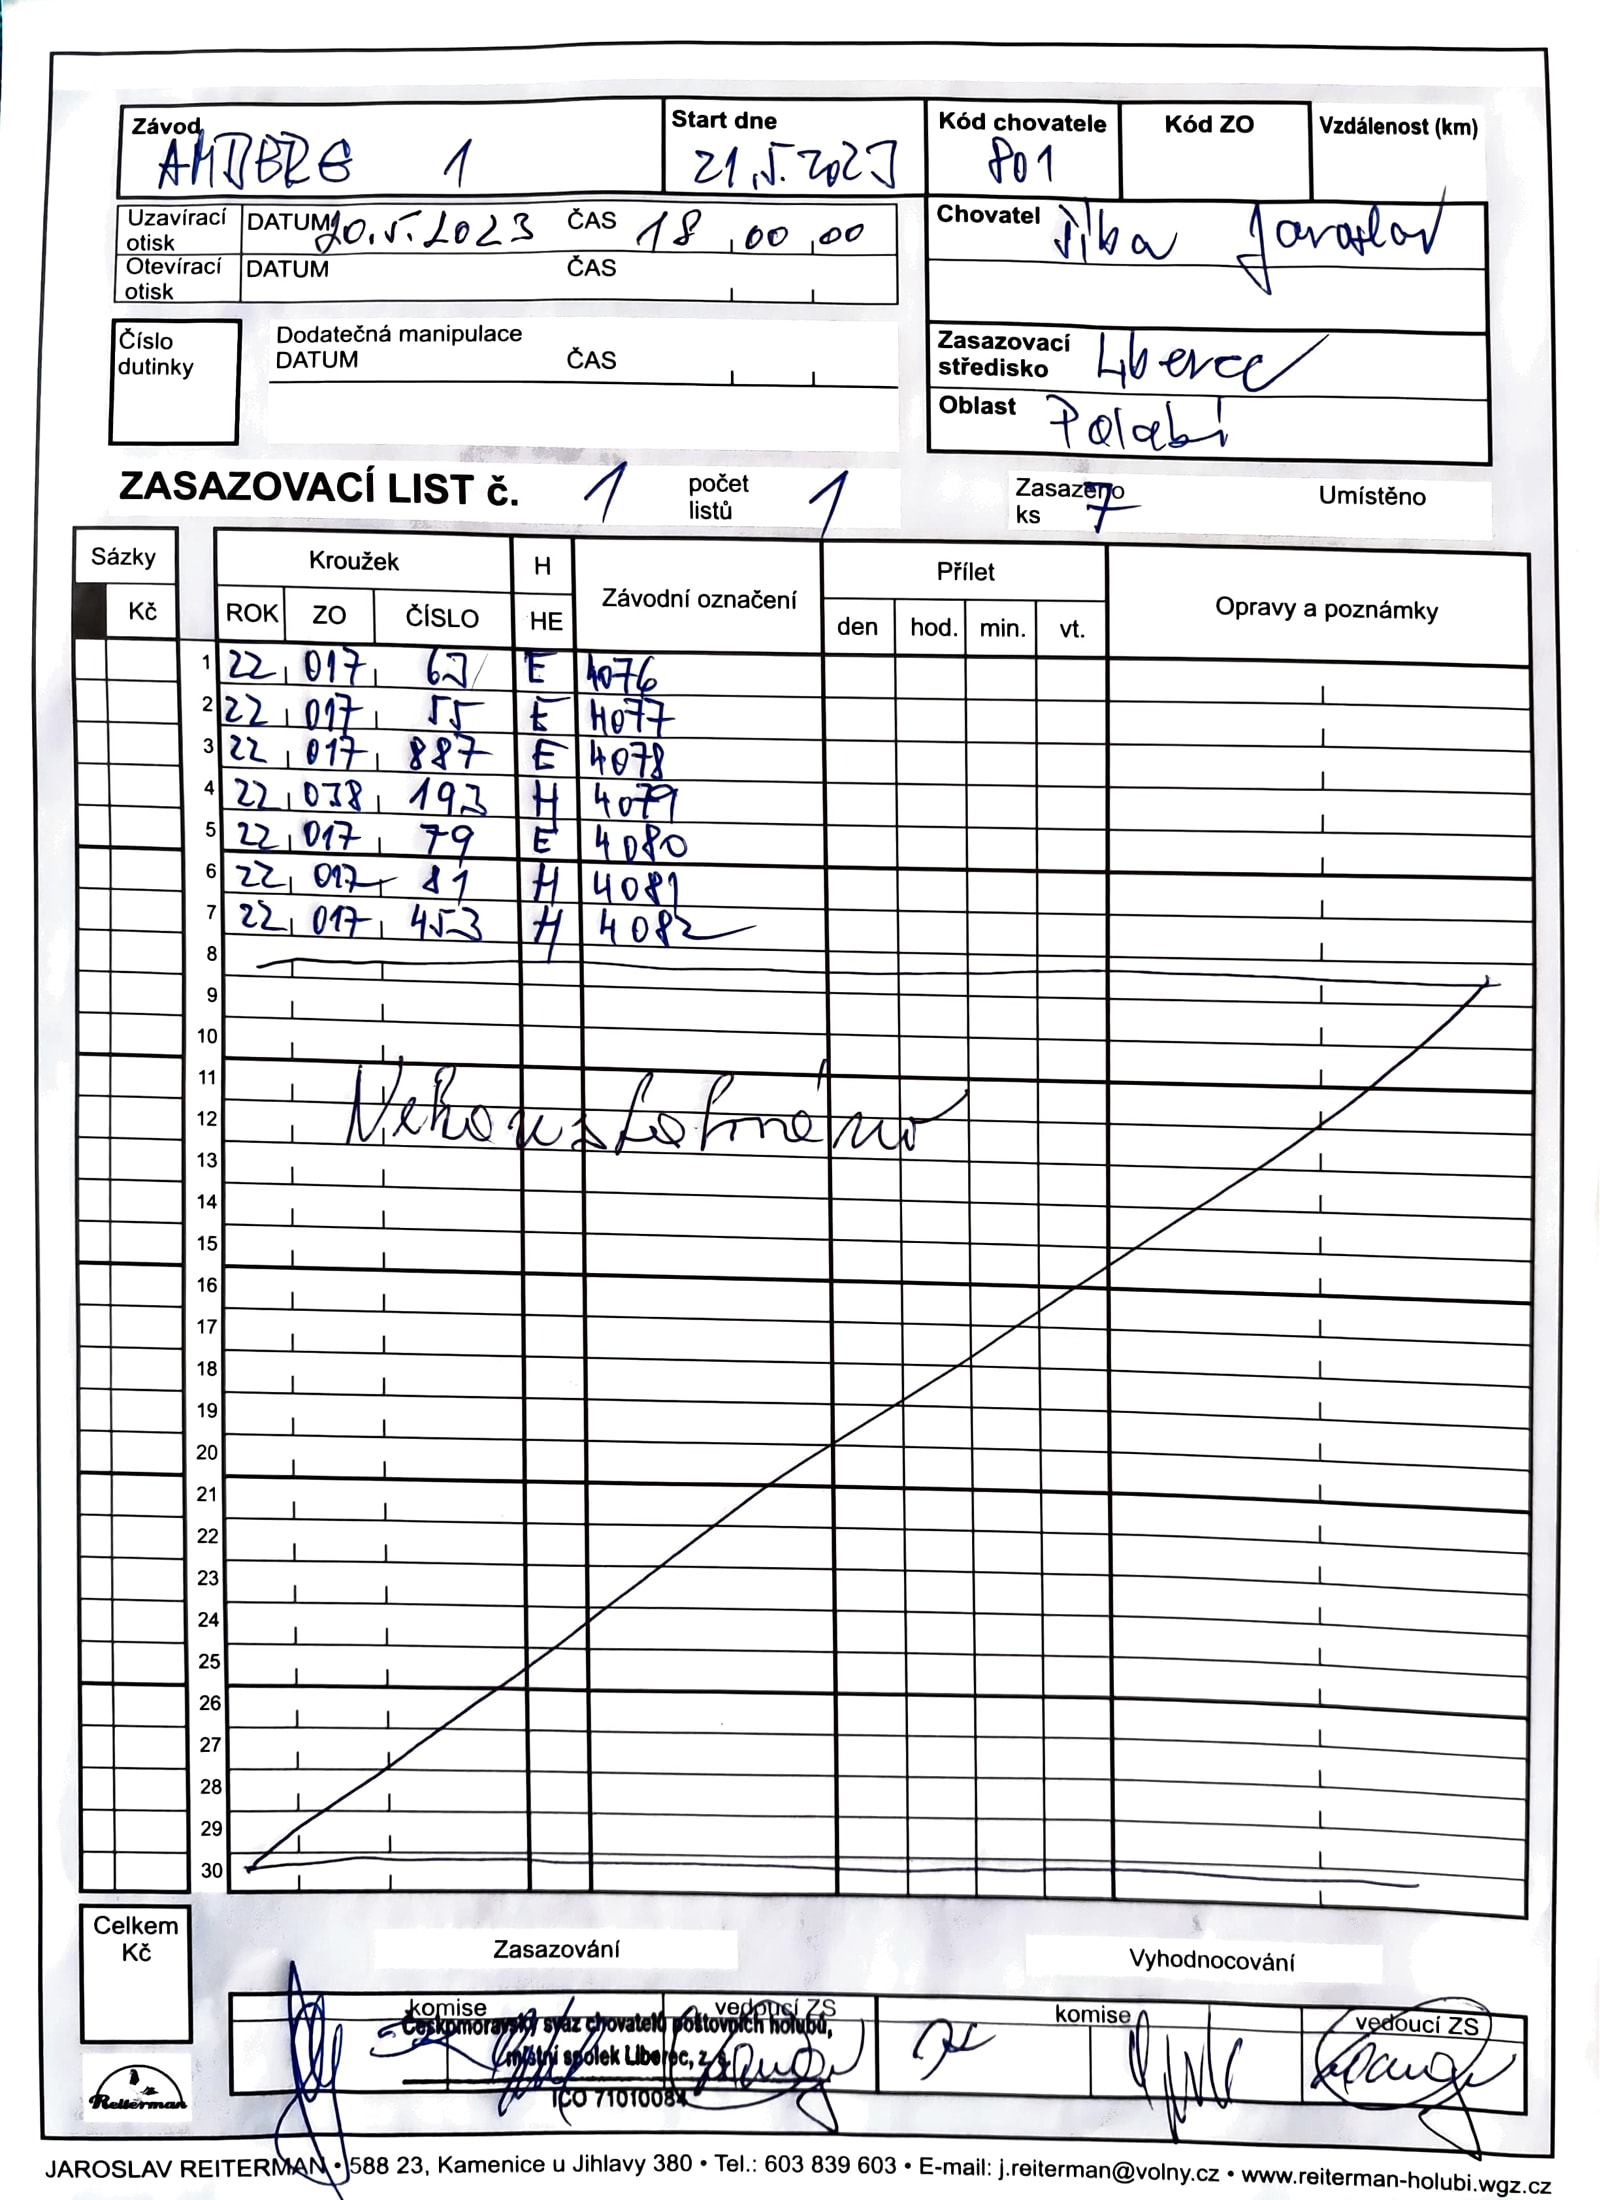 Závod Start dne Kód chovatele Kód ZO Vzdálenost (km)
AMBERG 1 21.5.2023 801
Uzavírací otisk DATUM 20.5.2023 ČAS 18 00 00
Otevírací otisk DATUM ČAS
Chovatel Jaroslav
Číslo dutinky
Dodatečná manipulace
DATUM ČAS
Zasazovací středisko Liberec
Oblast Polabí
ZASAZOVACÍ LIST č. 1 počet listů 1 Zasazeno ks 7 Umístěno
Sázky Kroužek H Závodní označení Přílet Opravy a poznámky
Kč ROK ZO ČÍSLO HE den hod. min. vt.
1 22 017 63 E 4076
2 22 017 55 E 4077
3 22 017 887 E 4078
4 22 038 193 H 4079
5 22 017 79 E 4080
6 22 017 81 H 4081
7 22 017 453 H 4082
8
9
10
11
12
13
14
15
16
17
18
19
20
21
22
23
24
25
26
27
28
29
30
Celkem Kč
Zasazování Vyhodnocování
komise vedoucí ZS komise vedoucí ZS
Českomoravský svaz chovatelů poštovních holubů,
místní spolek Liberec, z. s.
IČO 71010084
Reiterman
JAROSLAV REITERMAN • 588 23, Kamenice u Jihlavy 380 • Tel.: 603 839 603 • E-mail: j.reiterman@volny.cz • www.reiterman-holubi.wgz.cz